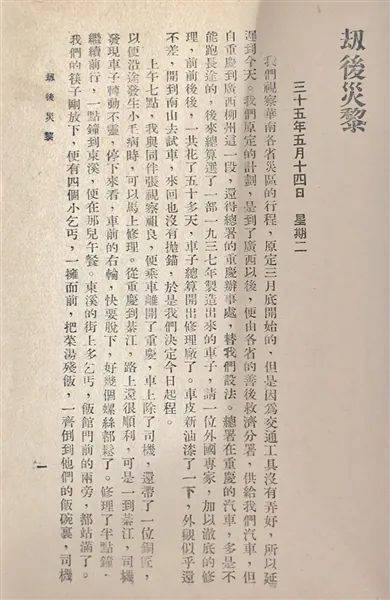 劫後災黎
三十五年五月十四日　星期二
我們視察華南各省災區的行程，原定三月底開始的，但是因爲交通工具沒有弄好，所以延
遲到今天。我們原定的計劃，是到了廣西以後，便由各省的善後救濟分署，供給我們汽車，但
自重慶到廣西柳州這一段，還待總署的重慶辦事處，替我們設法。總署在重慶的汽車，多是不
能跑長途的，後來總算選了一部一九三七年製造出來的車子，請一位外國專家，加以澈底的修
理，前前後後，一共花了五十多天，車子總算開出修理廠了。車皮新油漆了一下，外觀似乎還
不差，開到南山去試車，來回也沒有拋錨，於是我們決定今日起程。
上午七點，我與同伴張視察祖良，便乘車離開了重慶，車上除了司機，還帶了一位銅匠，
以便沿途發生小毛病時，可以馬上修理。從重慶到綦江，路上還很順利，可是一到綦江，司機
發現車子轉動不靈，停下來看，車前的右輪，快要脫下，好幾個螺絲都鬆了。修理了半點鐘，
繼續前行，一點鐘到東溪，便在那兒午餐。東溪的街上多乞丐，飯館門前的兩旁，都站滿了。
我們的筷子剛放下，便有四個小乞丐，一擁面前，把菜湯殘飯，一齊倒到他們的飯碗裏，司機
劫後災黎
一